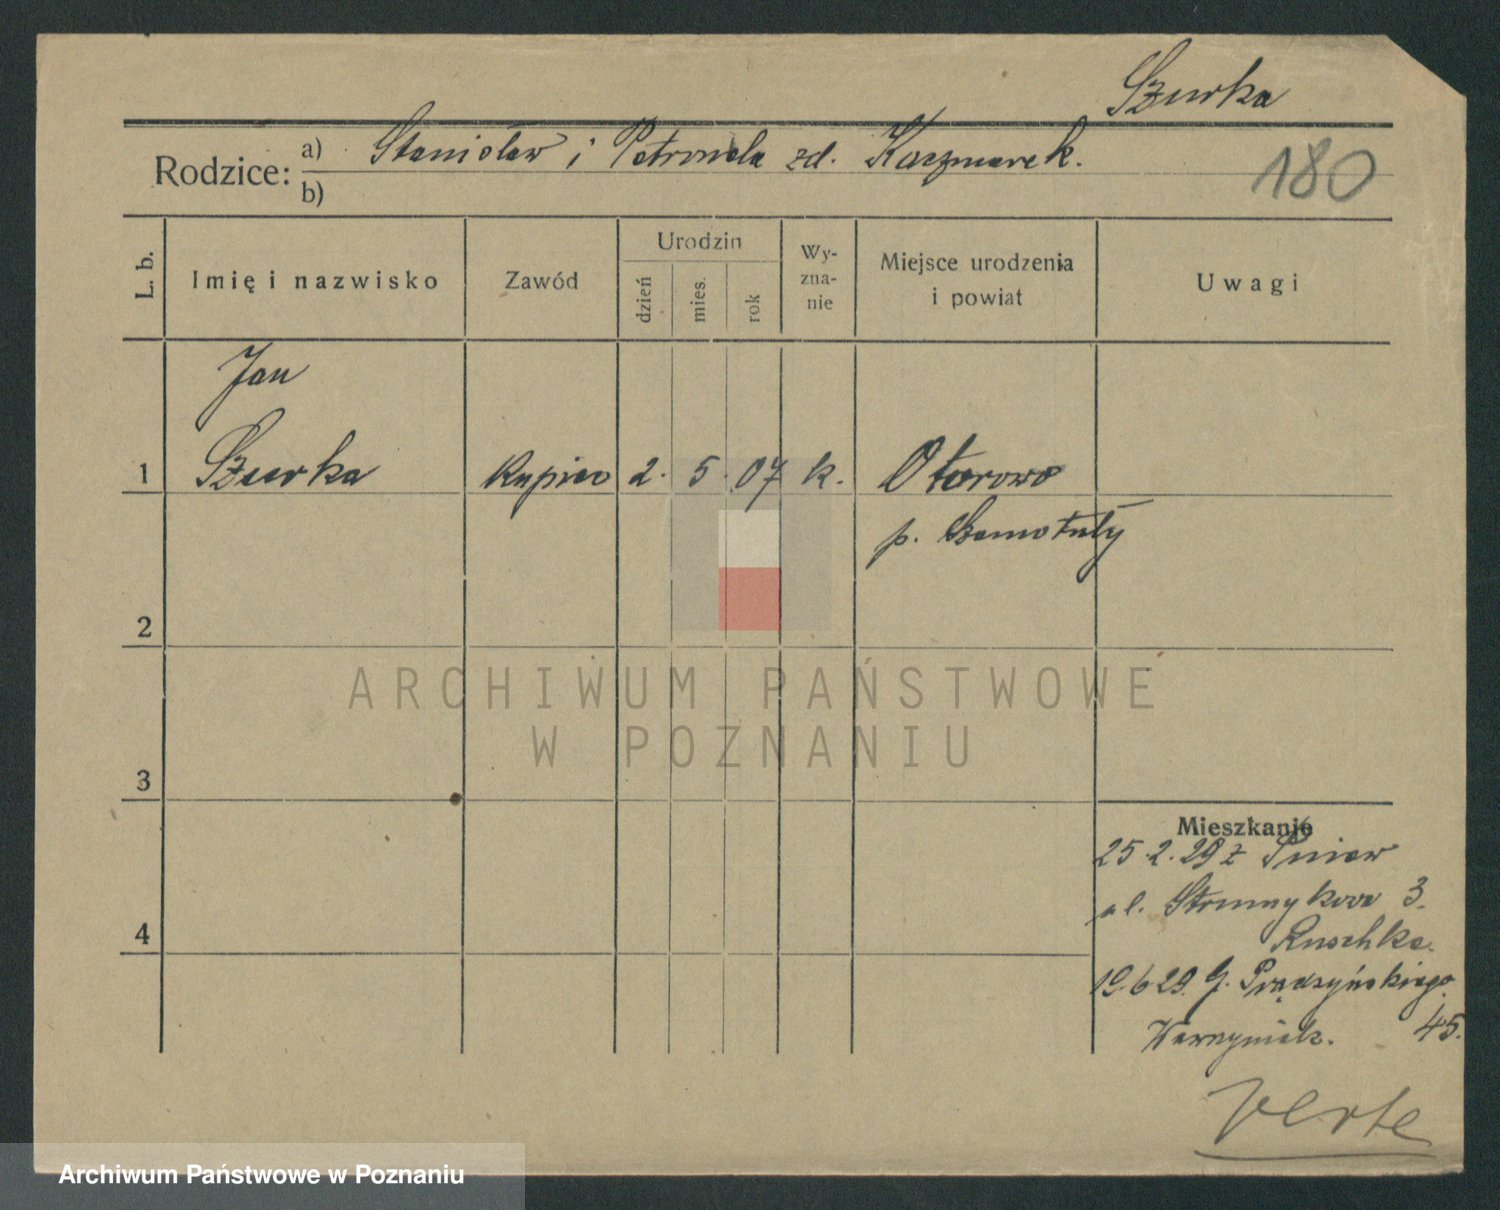 Szurka
Rodzice: a) Stanisław i Petronela zd. Kaczmarek.
b)
180
L. b. Imię i nazwisko Zawód Urodzin dzień mies. rok Wy-zna-nie Miejsce urodzenia i powiat Uwagi
Jan
1 Szurka Kupiec 2. 5. 07 k. Otorowo
p. Szamotuły
2
ARCHIWUM PAŃSTWOWE
W POZNANIU
3
Mieszkanie
25.2.29 z Pniew
ul. 3.
4
19.6.29. G. Prądzyńskiego
Wawrzyniak. 45.
verte
Archiwum Państwowe w Poznaniu